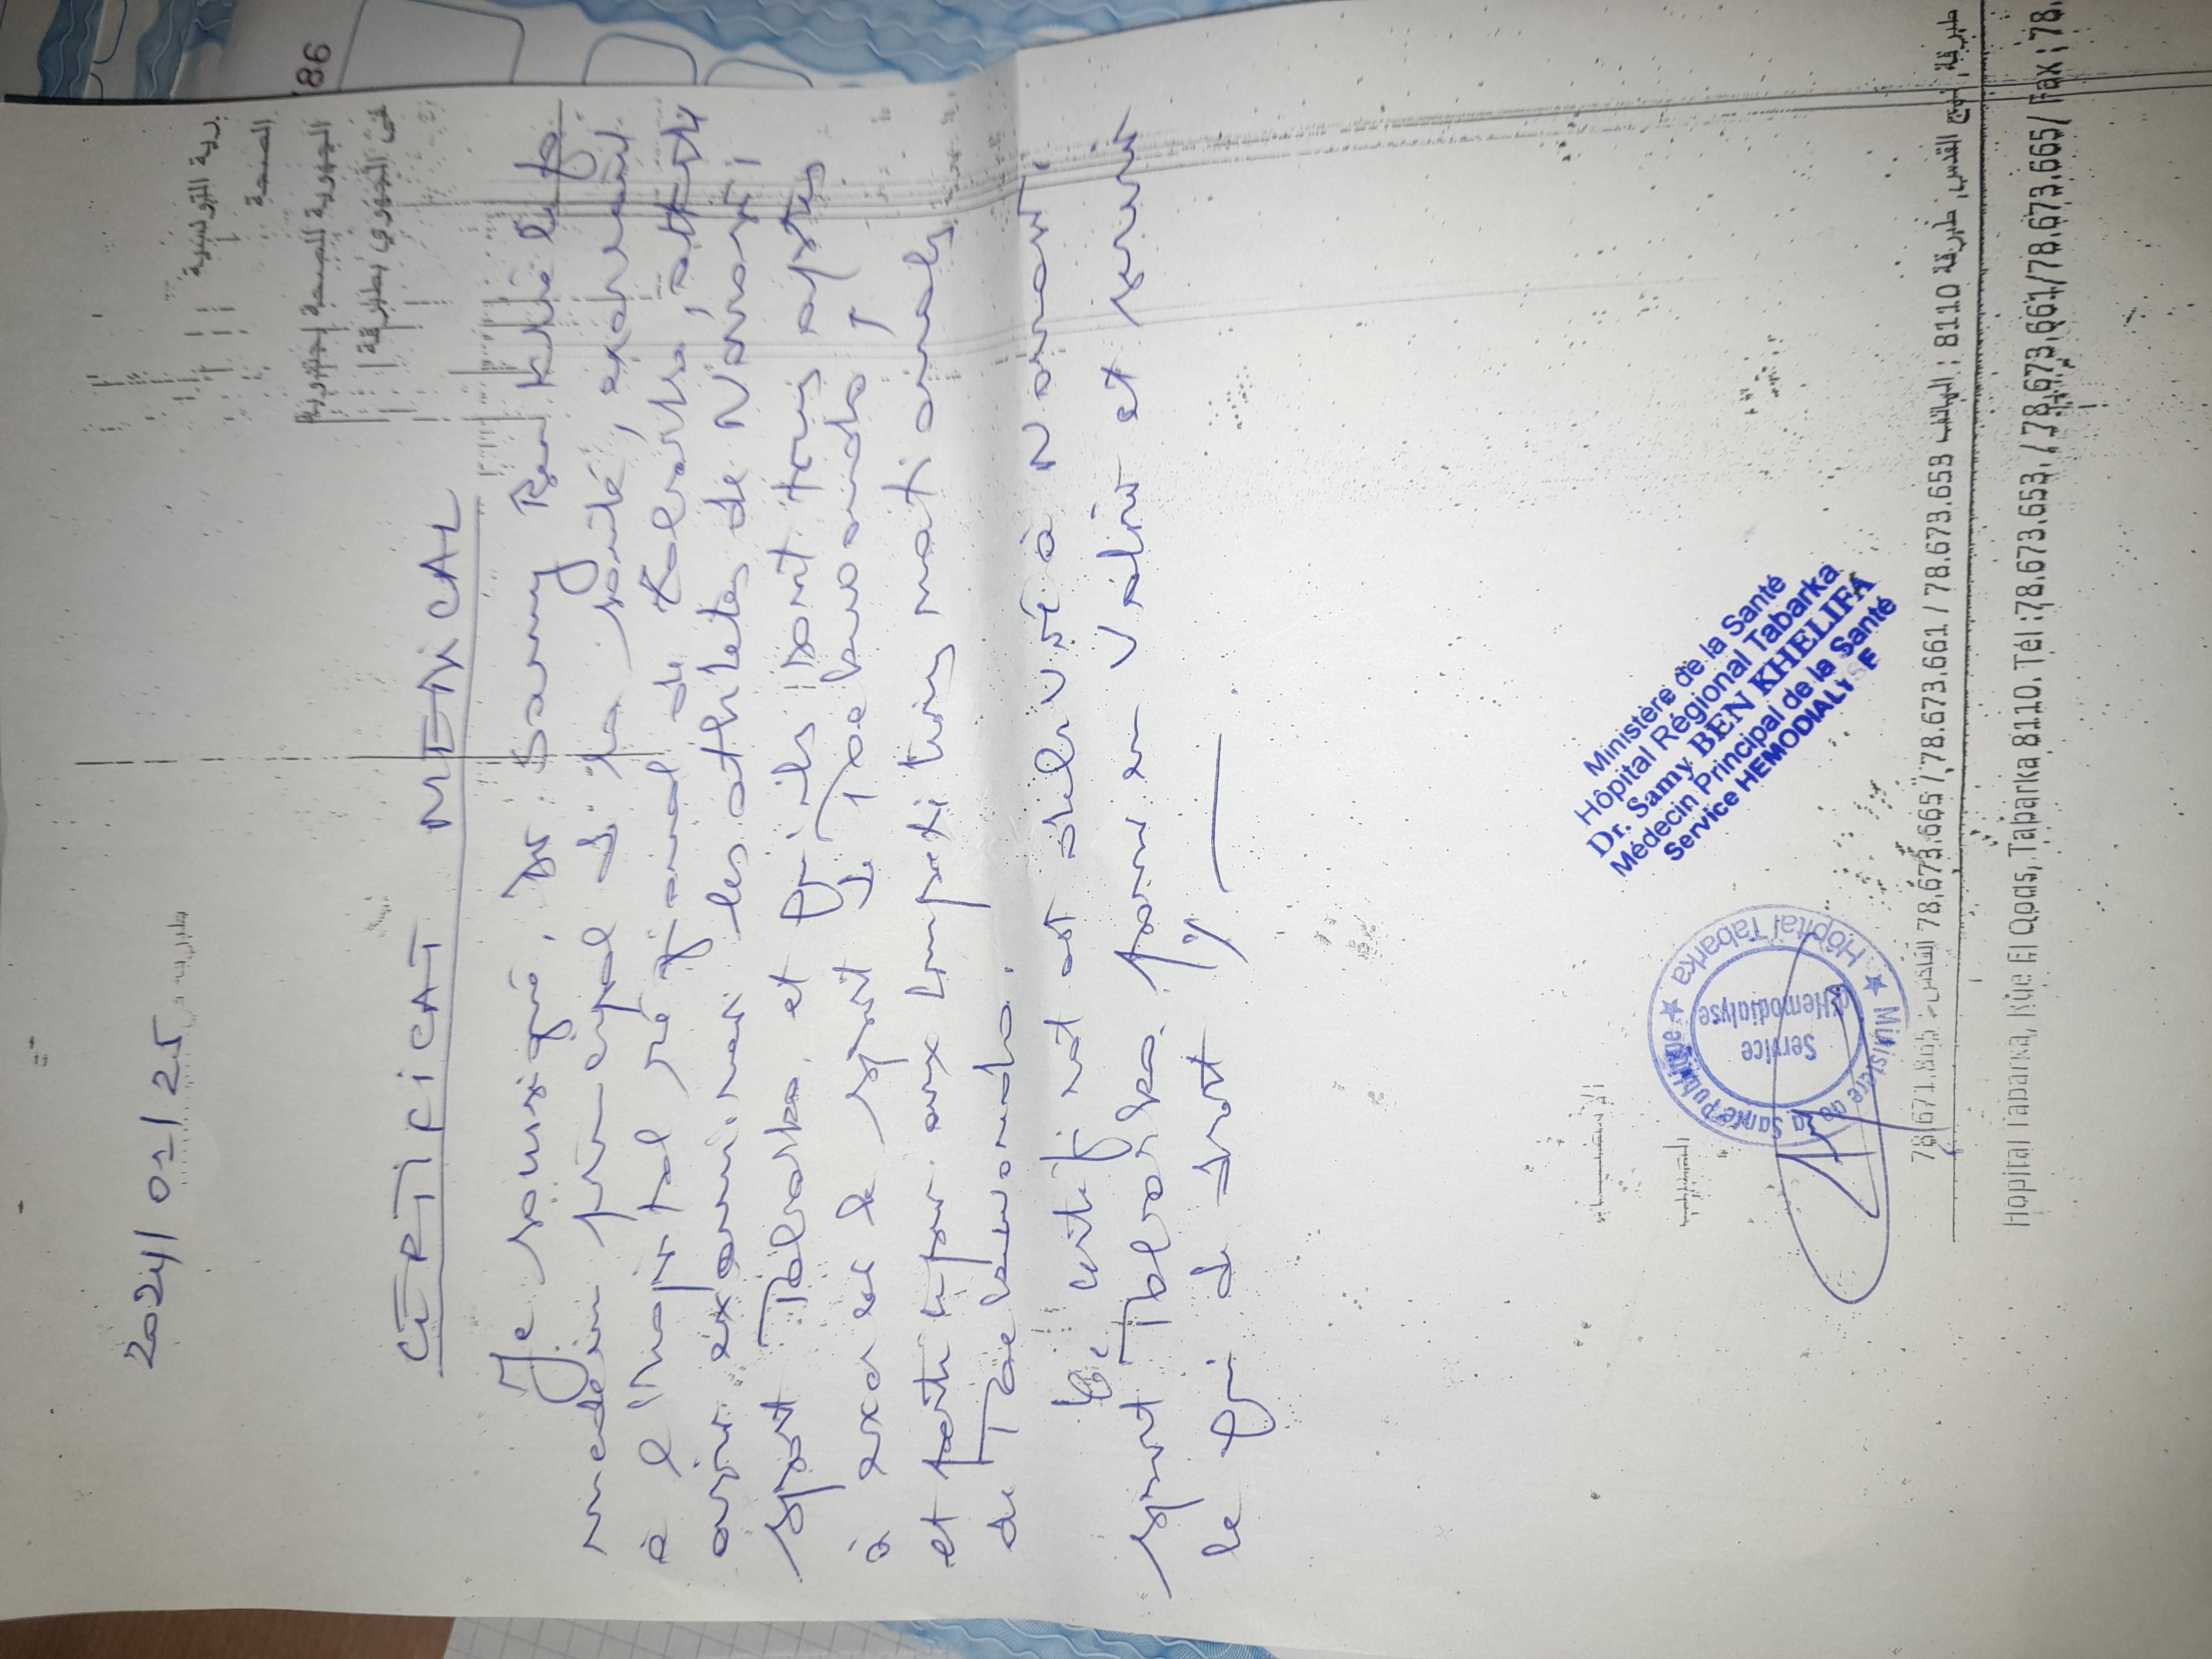 86
الصحة
الجهورية للصحة بجندوبة
2024/01/25
CERTIFICAT MEDICAL
Je soussigné, Dr Samy Ben Khelifa
médecin principal de la santé, exerçant
à l'hopital régional de Tabarka, atteste
avoir examiner les athlètes de Nawarti
sport Tabarka, et qu'ils sont tous aptes
à exercer le sport de Taekwondo,
et participer aux compétitions nationales
de Taekwondo.
Ce certificat est délivré à Nawarti
sport Tabarka pour en valoir et servir
ce que de droit
Ministère de la Santé
Hôpital Régional Tabarka
Dr. Samy BEN KHELIFA
Médecin Principal de la Santé
Service HEMODIALYSE
Ministère de la Santé Publique ★ Hôpital Tabarka ★
Service
d'Hemodialyse
نهج القدس, طبرقة 8110 : الهاتف 78.673.653 / 78.673.661 / 78.673.665 الفاكس : 78.671.805
Hopital Tabarka, Rue El Qods, Tabarka 8110. Tél :78.673.653 / 78.673.661/78.673.665/ Fax : 78.